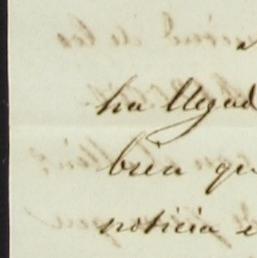 ha llegad
bien qu
noticia e